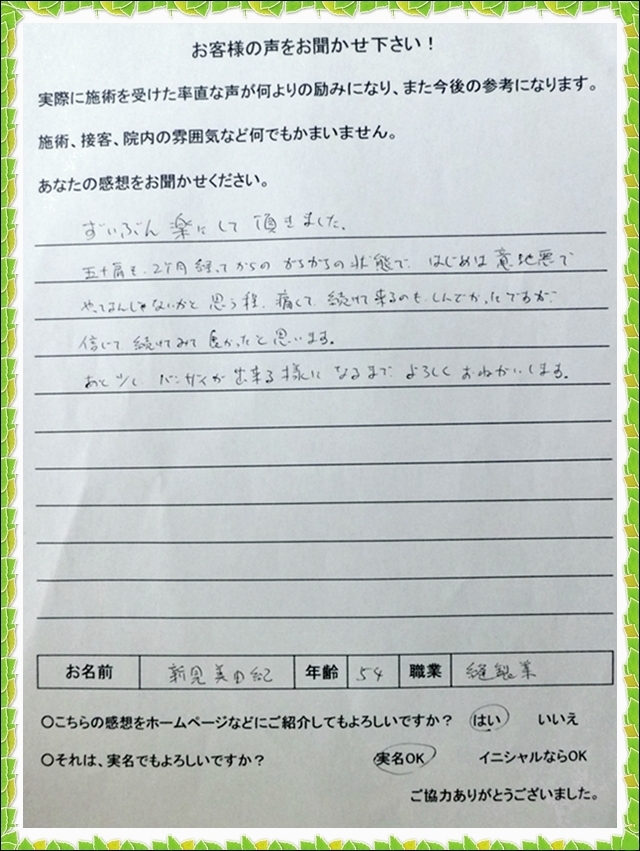 お客様の声をお聞かせ下さい！
実際に施術を受けた率直な声が何よりの励みになり、また今後の参考になります。
施術、接客、院内の雰囲気など何でもかまいません。
あなたの感想をお聞かせください。
ずいぶん楽にして頂きました。
五十肩も、2ケ月経ってからの がちがちの状態で、はじめは意地悪で
やってるんじゃないかと思う程、痛くて、続けて来るのも、しんでかったですが、
信じて、続けてみて良かったと思います。
あと少し バンザイが出来る様に なるまで よろしく おねがいします。
お名前 新見美由紀 年齢 54 職業 縫製業
〇こちらの感想をホームページなどにご紹介してもよろしいですか？ はい いいえ
〇それは、実名でもよろしいですか？ 実名OK イニシャルならOK
ご協力ありがとうございました。